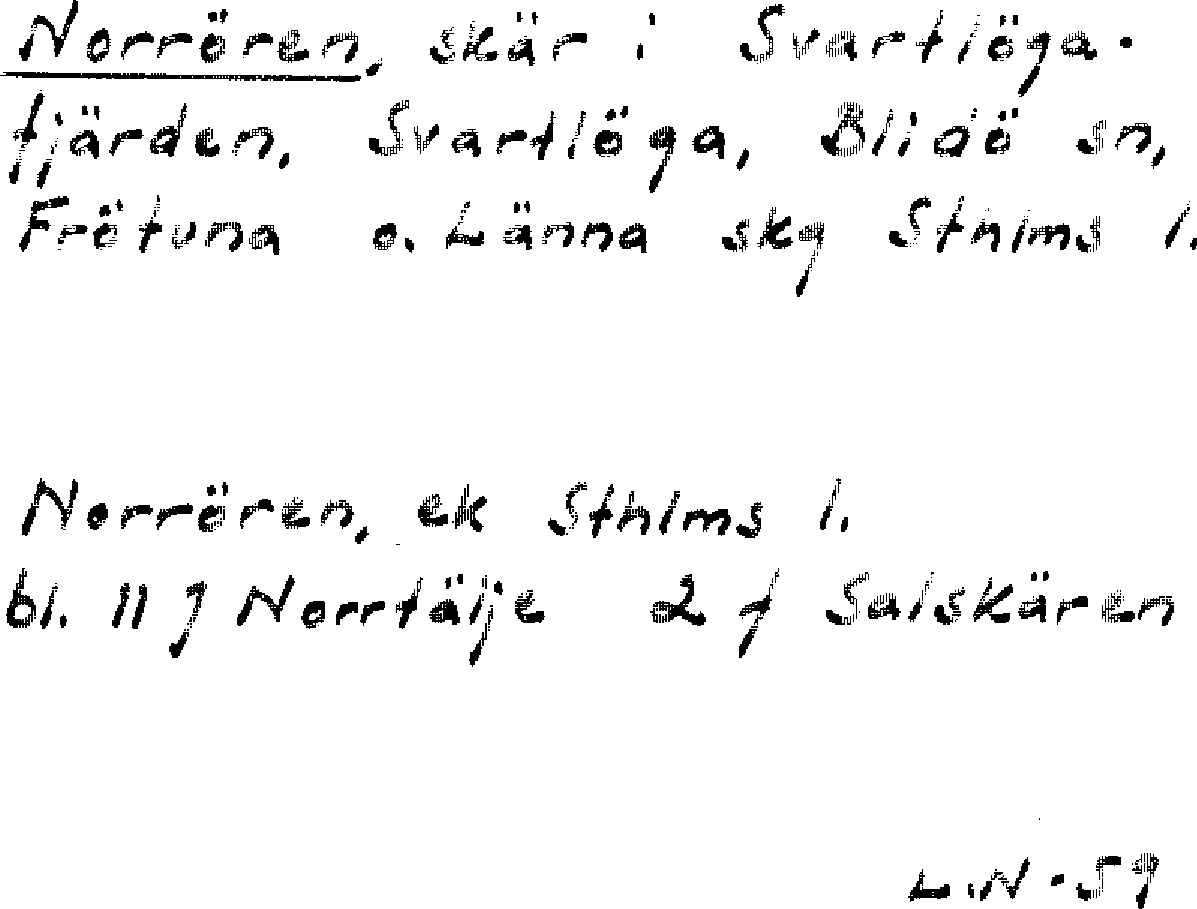 Norrören, skär i Svartlöga-
fjärden, Svartlöga, Blidö sn,
Frötuna o. Länna skg Sthlms l.
Norrören, ek Sthlms l.
bl. 11 J Norrtälje 2 f Salskären
L.N-59